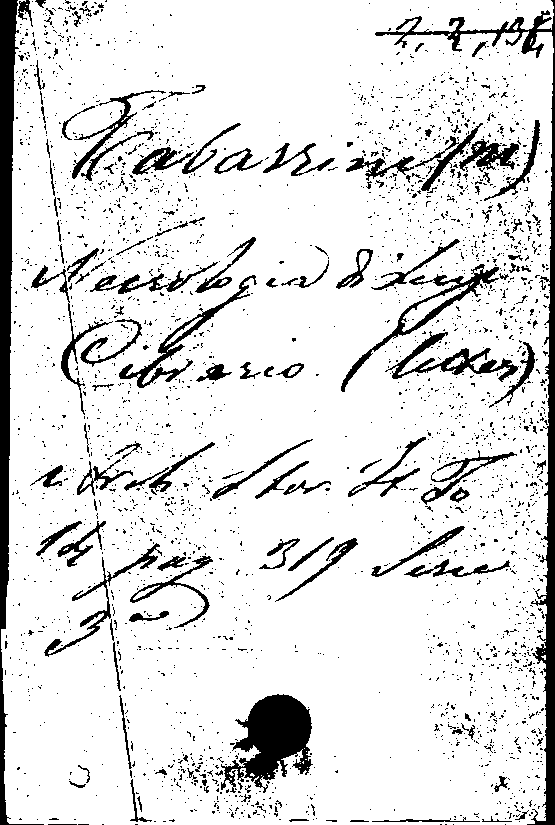 2, 2, 13
Tabarrini (M)
Necrologia di Luigi
Cibrario (
Arch. Stor. It. To
14 pag 319 Serie
3a